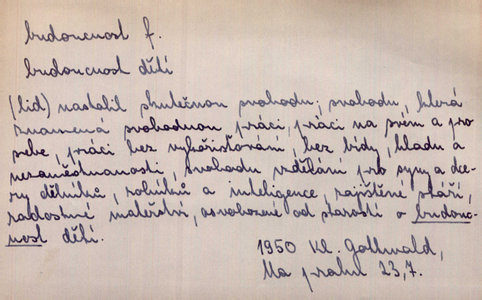 budoucnost f.
budoucnost dětí
(lid) nastolil skutečnou svobodu; svobodu, která
znamená svobodnou práci, práci na svém a pro
sebe, práci bez vykořisťování, bez bídy, hladu a
nezaměstnanosti, svobodu vzdělání pro syny a dce-
ry dělníků, rolníků a inteligence, zajištěné stáří,
radostné mateřství, osvobozené od starostí o budouc-
nost dětí.
1950 Kl. Gottwald,
Na prahu 23,7.